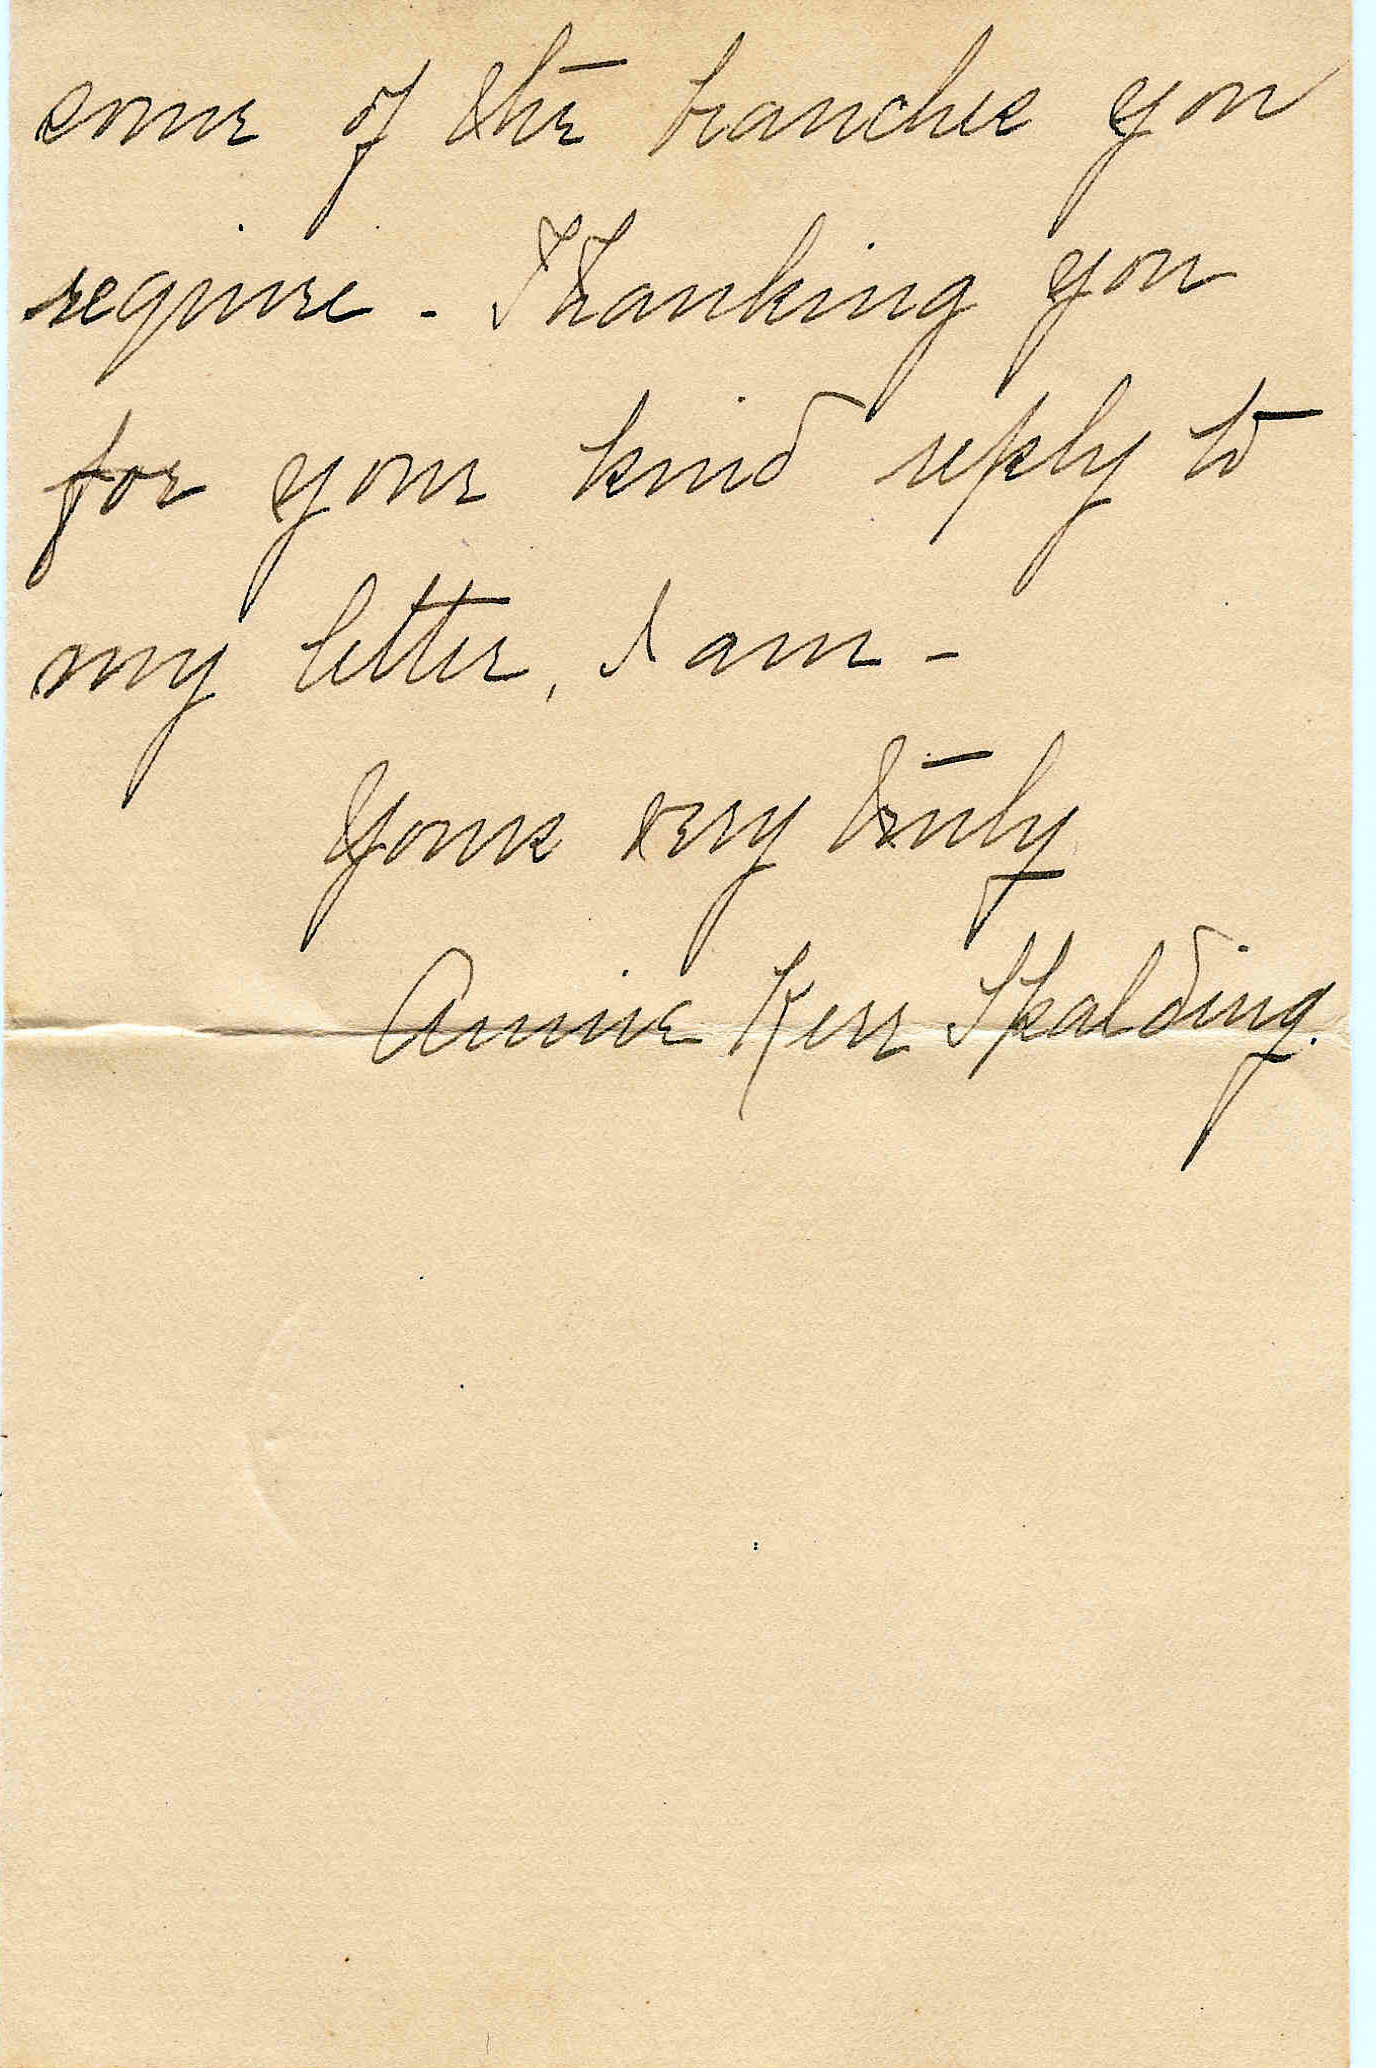 some of the branches you
require - Thanking you
for your kind reply to
my letter, I am -
Yours very truly
Annie Kerr Spalding.